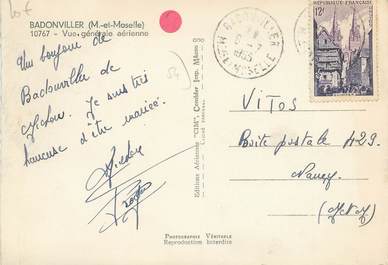 BADONVILLER (M.-et-Moselle)
10767 - Vue générale aérienne
Un bonjour de
Badonviller de
Je suis très
heureuse d'être mariée.
Editions Aériennes "CIM", Combier Imp. Mâcon
BADONVILLER
1955
MRE ET MOSELLE
RÉPUBLIQUE FRANÇAISE
12F
VITOS
Boite postale 429.
Nancy
(M et M)
PHOTOGRAPHIE VÉRITABLE
Reproduction Interdite